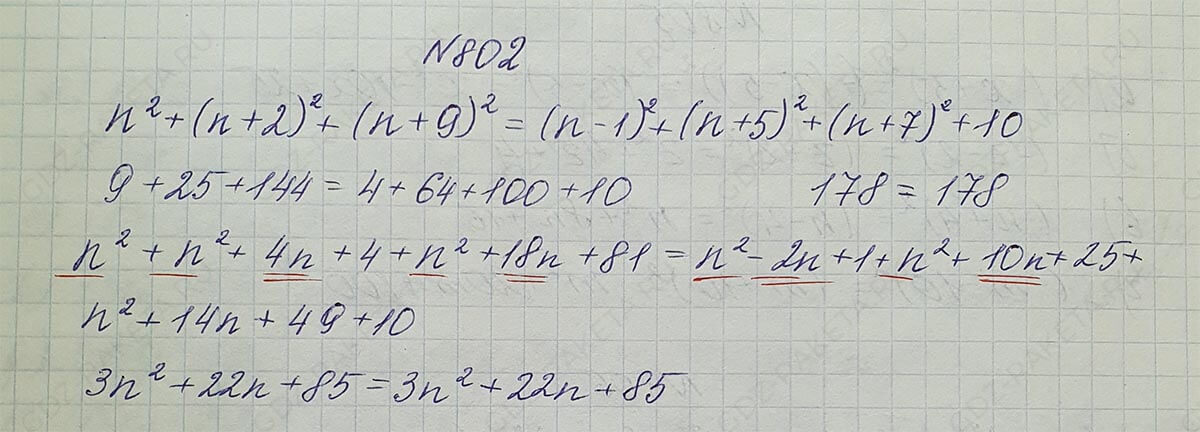 N802
n² + (n+2)² + (n+9)² = (n-1)² + (n+5)² + (n+7)² + 10
9 + 25 + 144 = 4 + 64 + 100 + 10 178 = 178
n² + n² + 4n + 4 + n² + 18n + 81 = n² - 2n + 1 + n² + 10n + 25 +
n² + 14n + 49 + 10
3n² + 22n + 85 = 3n² + 22n + 85